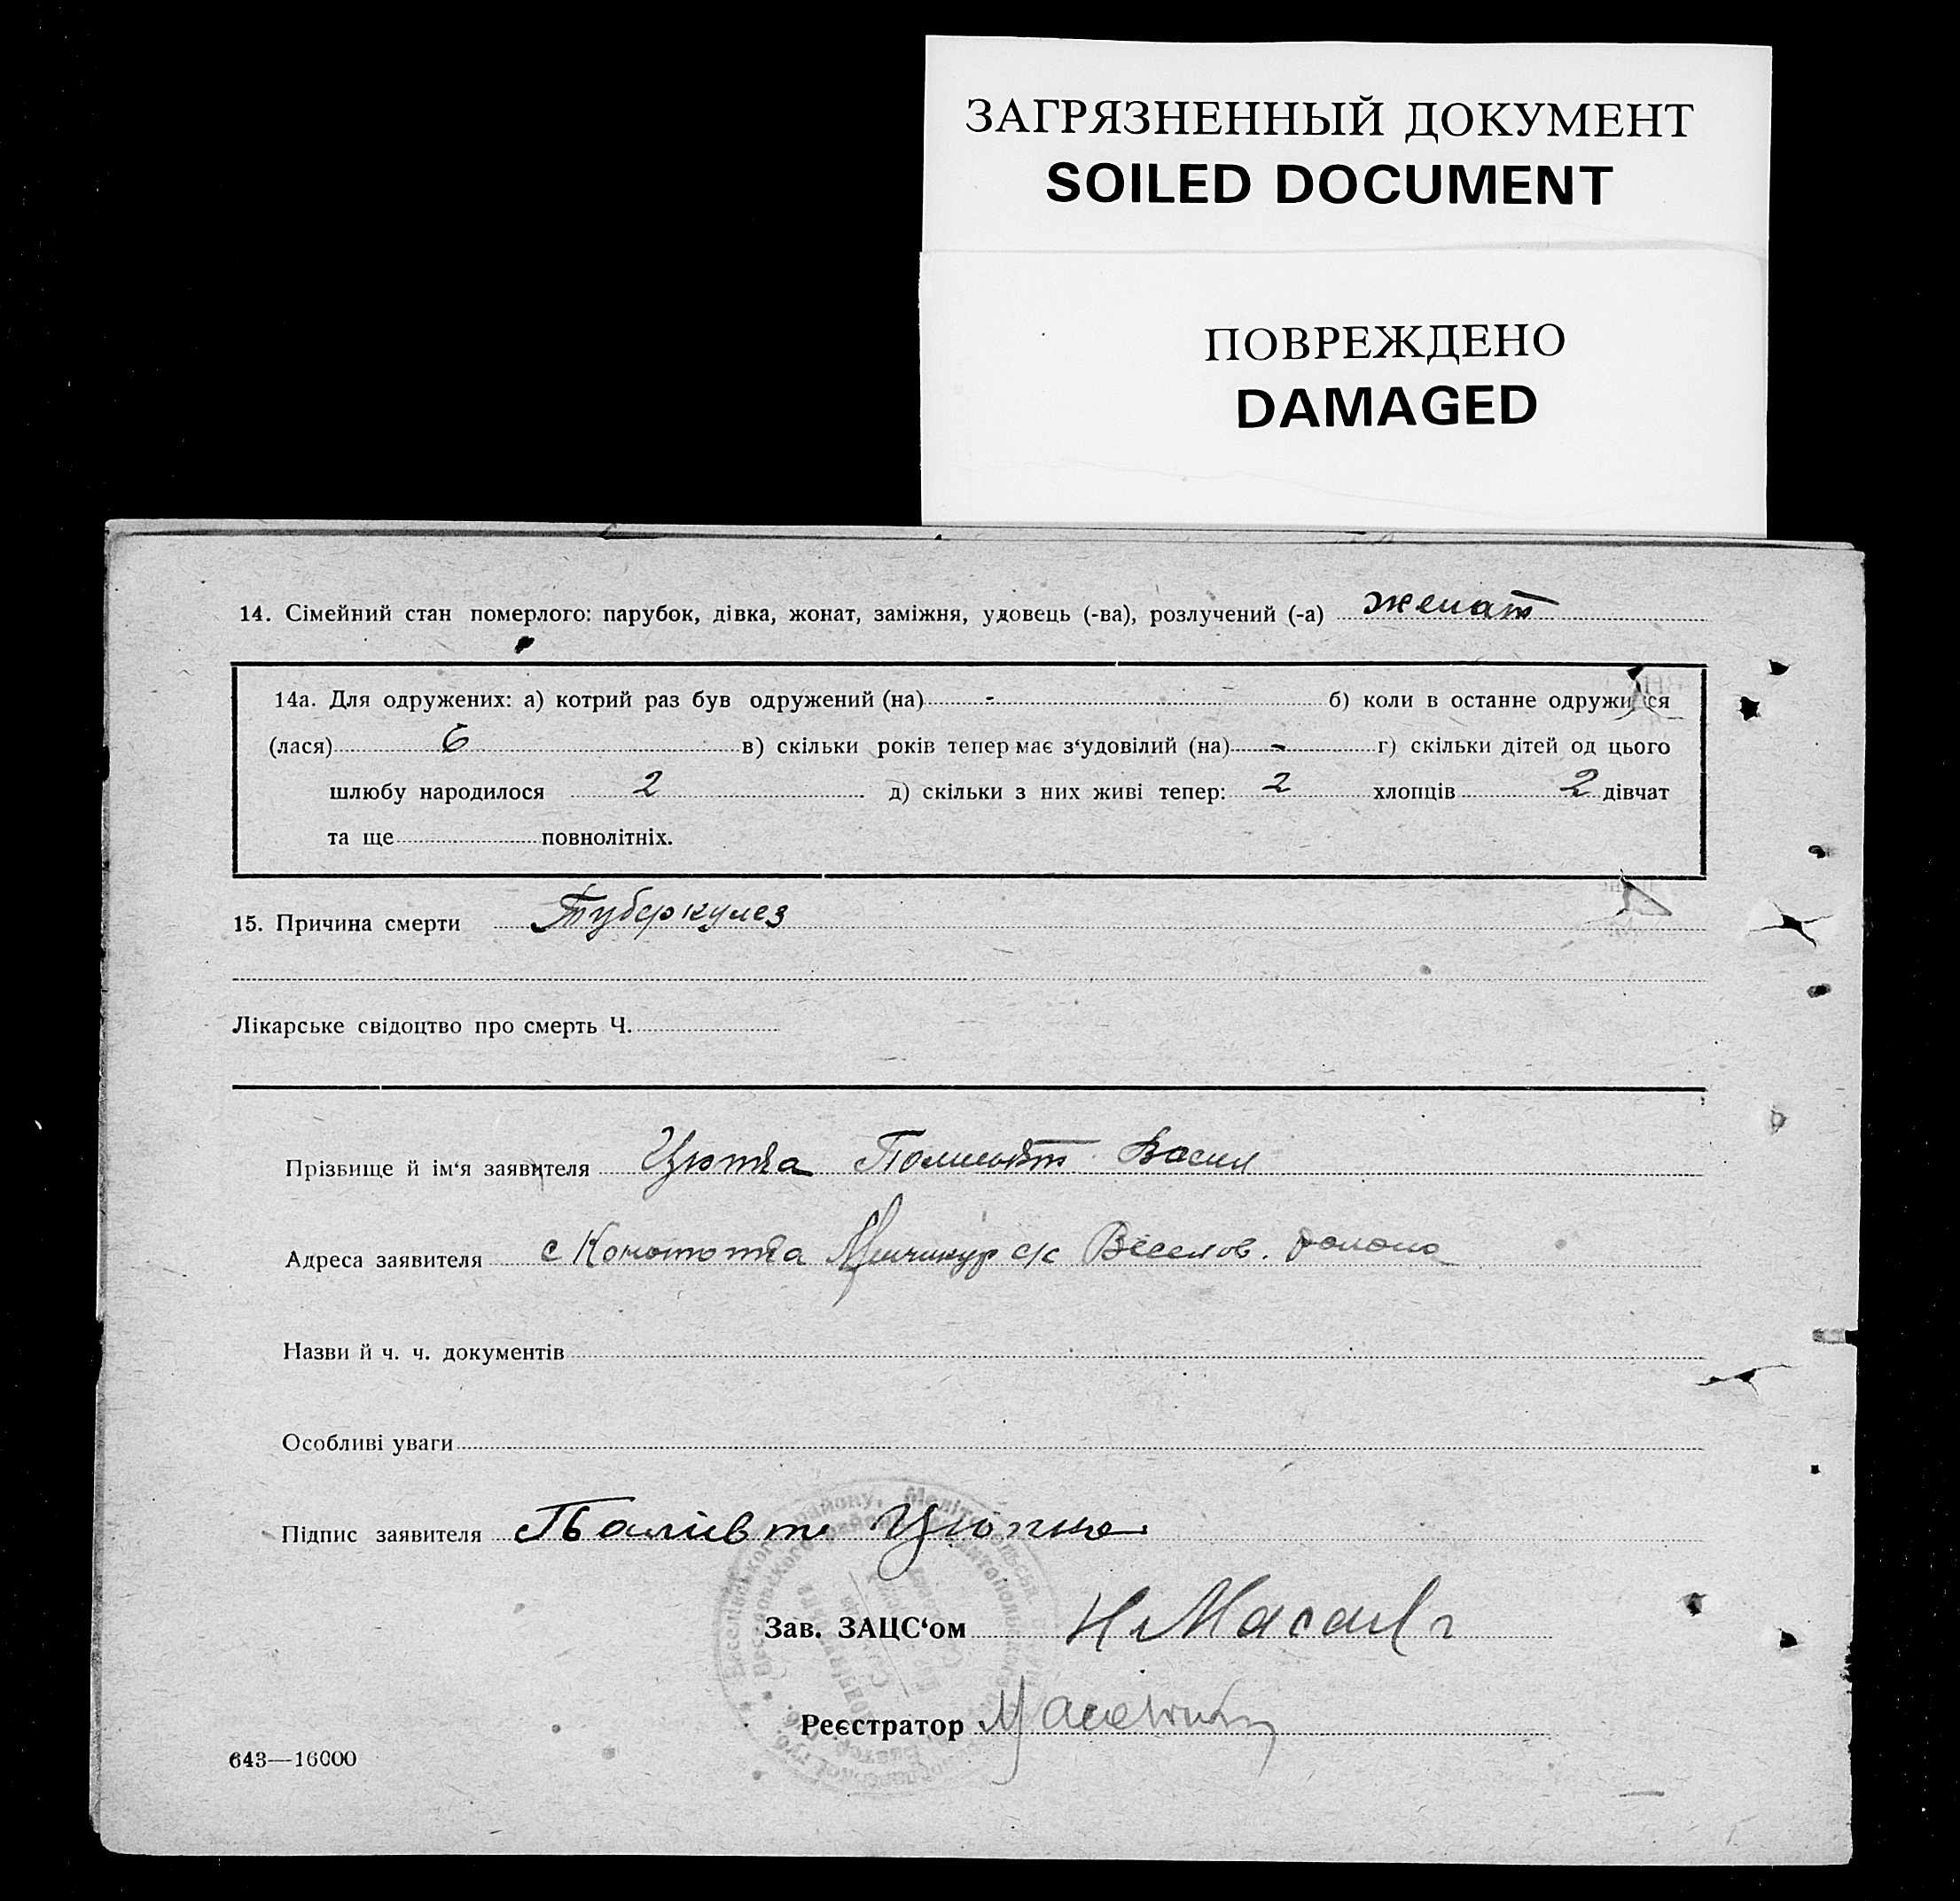 ЗАГРЯЗНЕННЫЙ ДОКУМЕНТ
SOILED DOCUMENT
ПОВРЕЖДЕНО
DAMAGED
14. Сімейний стан померлого: парубок, дівка, жонат, заміжня, удовець (-ва), розлучений (-а) женат
14а. Для одружених: а) котрий раз був одружений (на) - б) коли в останне одружи ся
(лася) 6 в) скільки років тепер має з‘удовілий (на) - г) скільки дітей од цього
шлюбу народилося 2 д) скільки з них живі тепер: 2 хлопців 2 дівчат
та ще повнолітніх.
15. Причина смерти Туберкулез
Лікарське свідоцтво про смерть Ч.
Прізвище й ім‘я заявителя
Адреса заявителя с с/с Веселов.
Назви й ч. ч. документів
Особливі уваги
Підпис заявителя
Зав. ЗАЦС‘ом
Реєстратор
643—16000